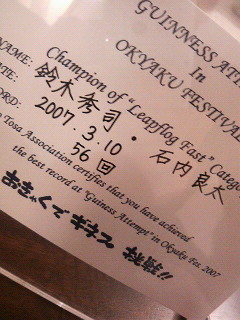 GUINNESS ATTE
In
OKYAKU FESTIVAL
Champion of "Leapflog Fast" Categ
NAME: 鈴木秀司・石内良太
ATE: 2007.3.10
ORD: 56回
Tosa Association certifies that you have achieved
the best record at "Guiness Attempt" in Okyaku Fes. 2007